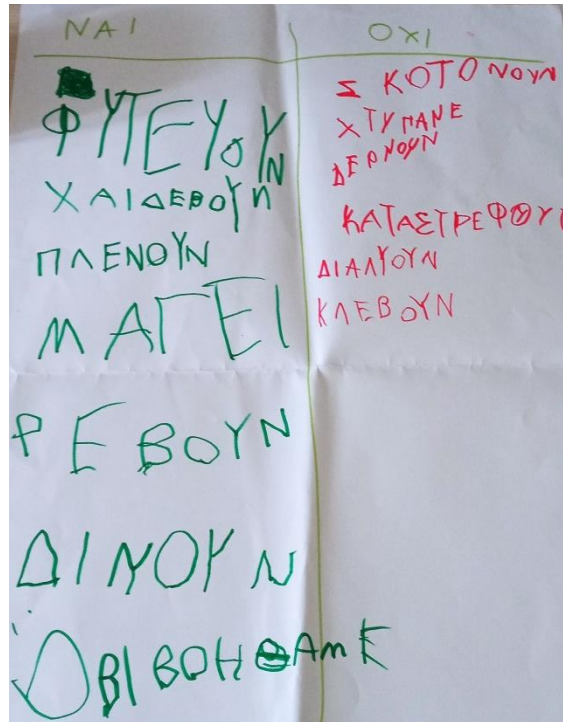 ΝΑΙ
ΦΥΤΕΥΟΥΝ
ΧΑΙΔΕΒΟΥΝ
ΠΛΕΝΟΥΝ
ΜΑΓΕΙ
ΡΕΒΟΥΝ
ΔΙΝΟΥΝ
ΒΙΒΟΗΘΑΜΕ
ΟΧΙ
ΣΚΟΤΟΝΟΥΝ
ΧΤΥΠΑΝΕ
ΔΕΡΝΟΥΝ
ΚΑΤΑΣΤΡΕΦΟΥΝ
ΔΙΑΛΥΟΥΝ
ΚΛΕΒΟΥΝ